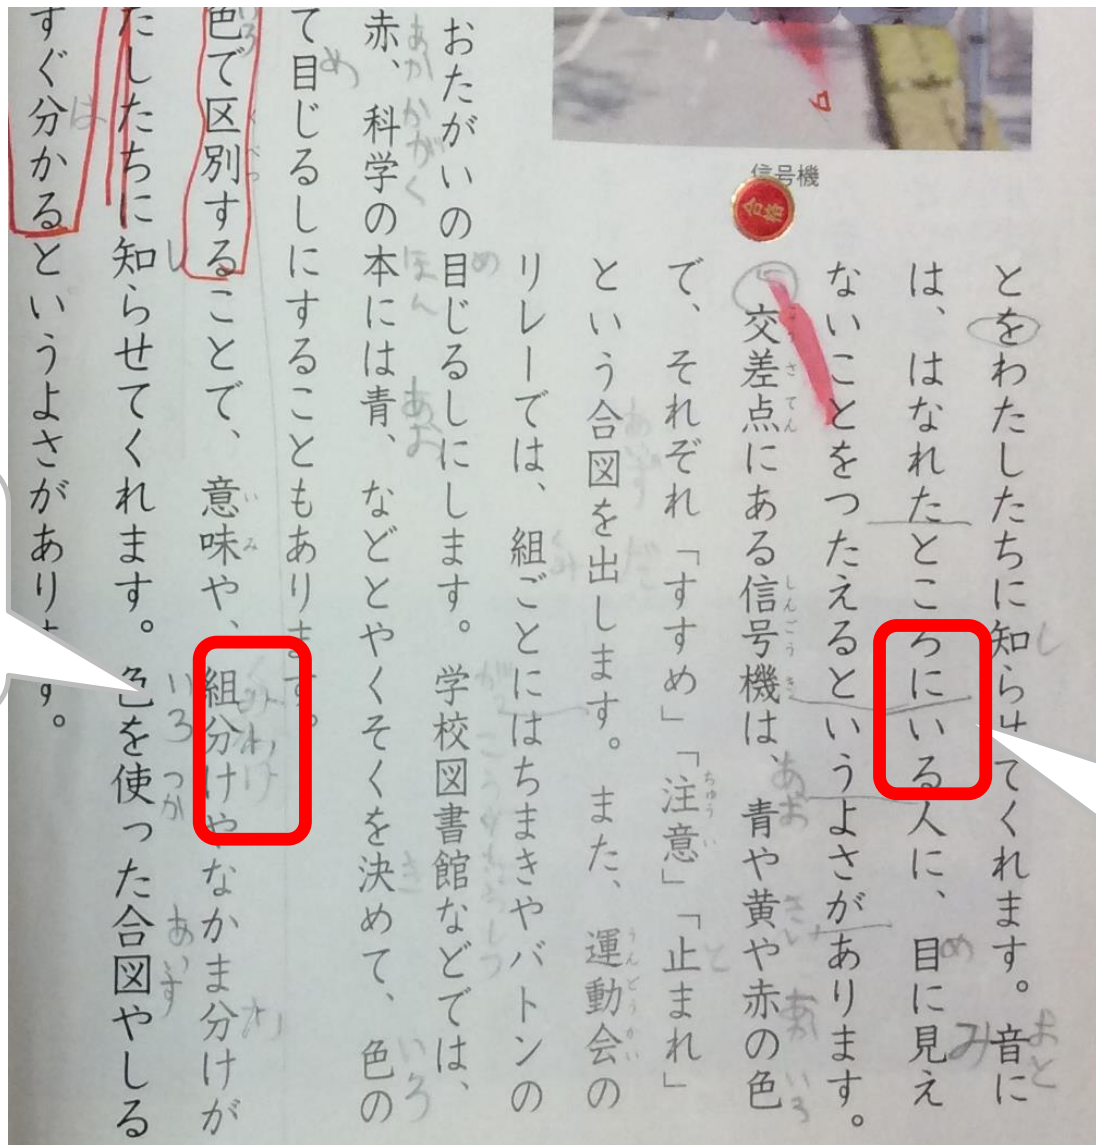 信号機
合格
とをわたしたちに知らせてくれます。音に
は、はなれたところにいる人に、目に見え
ないことをつたえるというよさがあります。
交差点にある信号機は、青や黄や赤の色
で、それぞれ「すすめ」「注意」「止まれ」
という合図を出します。また、運動会の
リレーでは、組ごとにはちまきやバトンの
おたがいの目じるしにします。学校図書館などでは、
赤、科学の本には青、などとやくそくを決めて、色の
て目じるしにすることもあります。
色で区別することで、意味や、組分けやなかま分けが
たしたちに知らせてくれます。色を使った合図やしる
すぐ分かるというよさがあります。